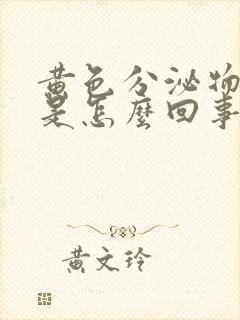 黄色分泌物
是怎麽回事
黄文玲